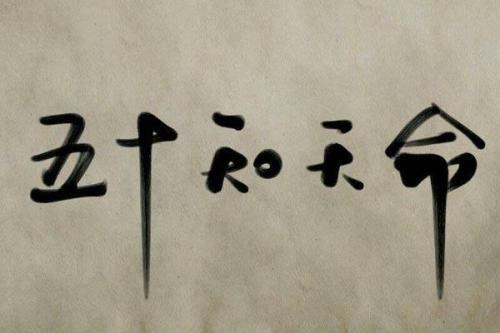 五十知天命